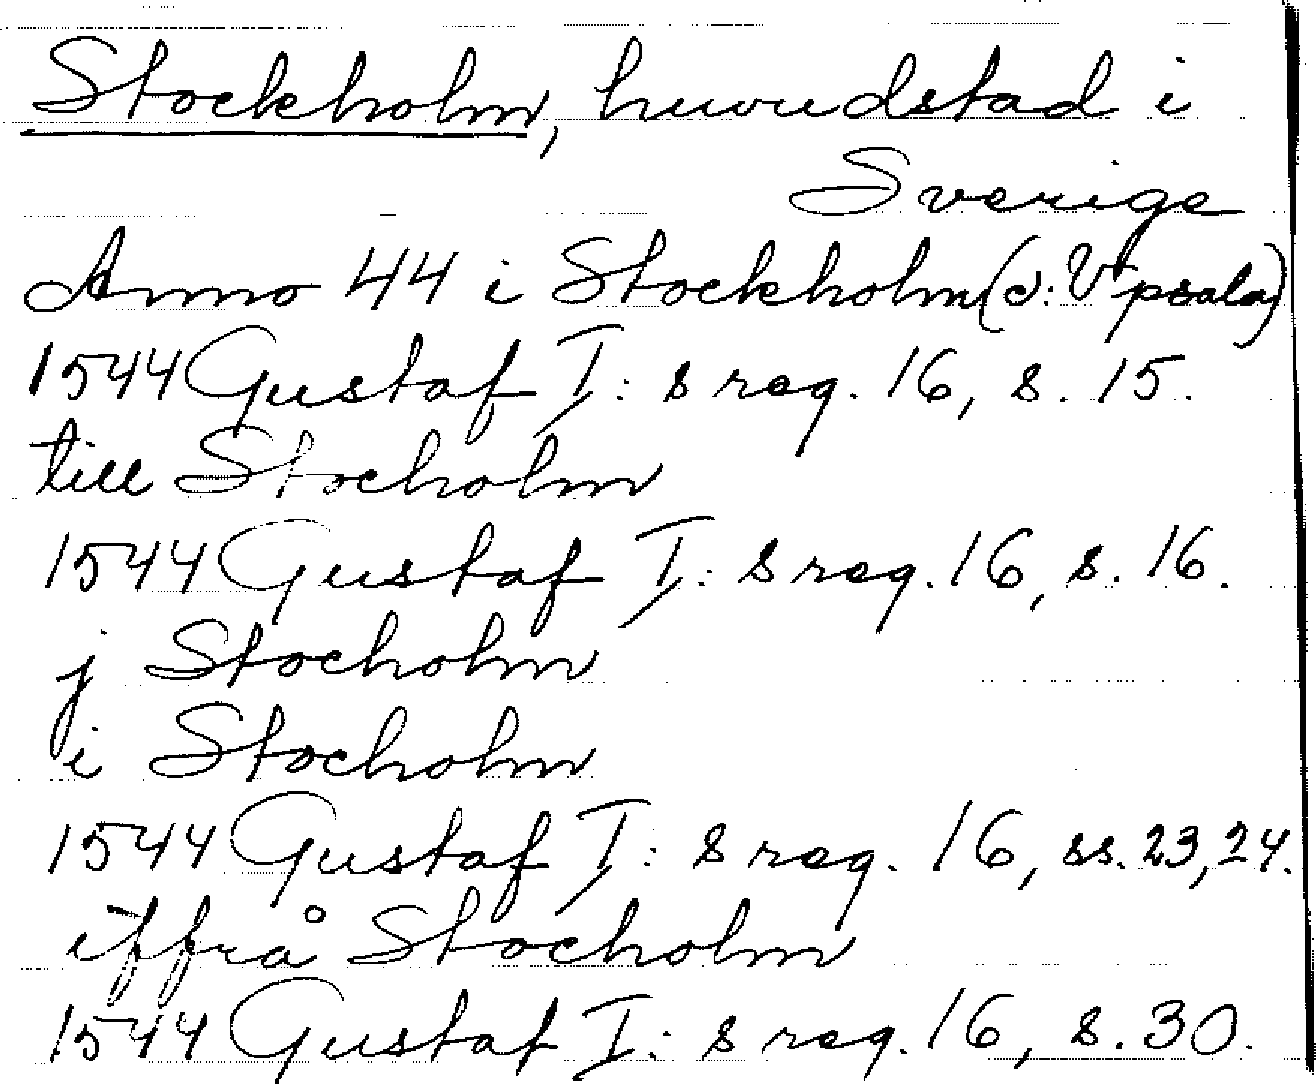 Stockholm, huvudstad i
Sverige
Anno 44 i Stockholm (ɔ: Vpsala)
1544 Gustaf I:s reg. 16, s. 15.
till Stocholm
1544 Gustaf I:s reg. 16, s. 16.
j Stocholm
i Stocholm
1544 Gustaf I:s reg. 16, ss. 23, 24.
iffrå Stocholm
1544 Gustaf I:s reg. 16, s. 30.